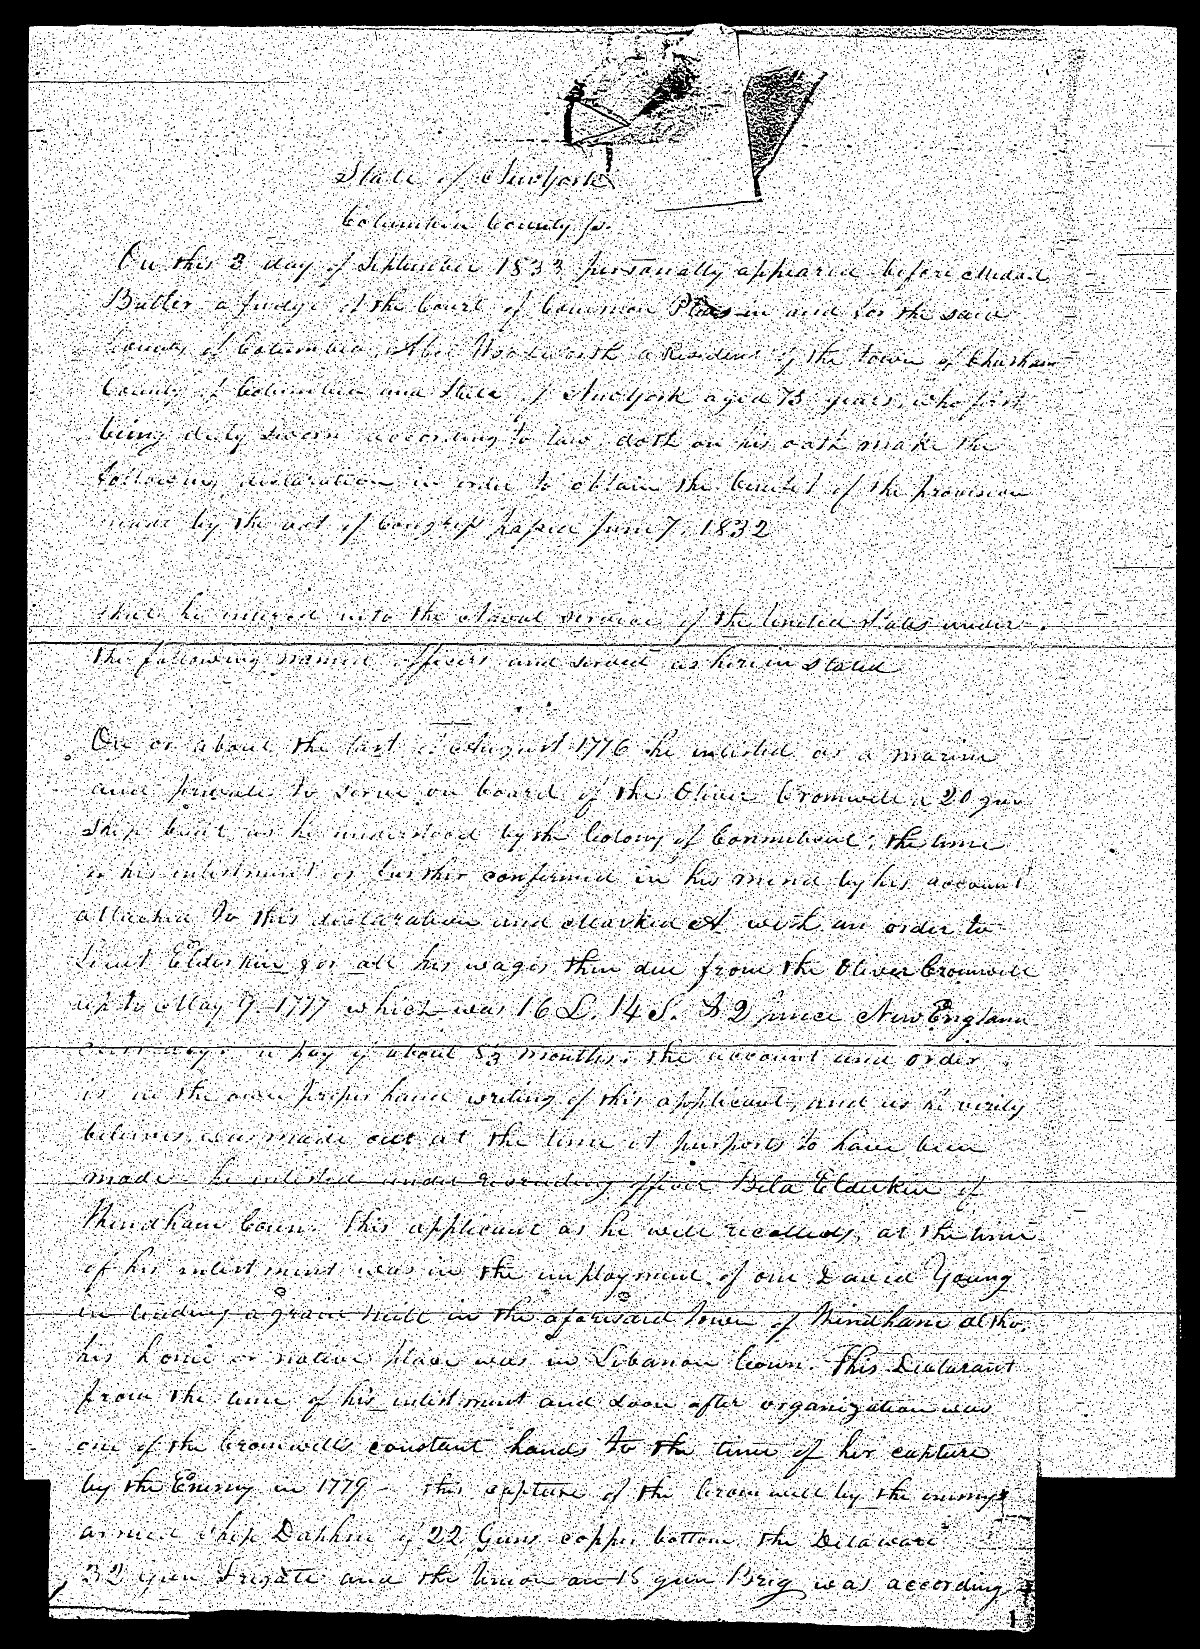 State of New York
Columbia County ss.
On this 3 day of September 1833 personally appeared before Medad
Butler a Judge of the Court of Common Pleas in and for the said
County of Columbia, Abel Woodworth a Resident of the town of Chatham
County of Columbia and State of New York aged 75 years, who first
being duly sworn according to law, doth on his oath make the
following declaration in order to obtain the benefit of the provision
made by the act of Congress passed June 7, 1832
that he entered into the Naval service of the United States under
the following named officers and served as herein stated
On or about the last of August 1776 he enlisted as a marine
and private to serve on board of the Oliver Cromwell a 20 gun
Ship built as he understood by the Colony of Connecticut; the time
of his enlistment is further confirmed in his mind by his account
attached to this declaration and Marked A with an order to
Lieut Elderkin for all his wages then due from the Oliver Cromwell
up to May 9 1777 which was 16 L. 14 S. & 2 pence New England
a pay of about 8½ months, the account and order
is in the own proper hand writing of this applicant, and as he verily
believes was made out at the time it purports to have been
made he enlisted under recruiting officer Bela Elderkin of
Windham Conn. This applicant as he well recollects, at the time
of his enlistment was in the employment of one David Young
in tending a grain mill in the aforesaid town of Windham altho.
his home or native place was in Lebanon Conn. This Declarant
from the time of his enlistment and soon after organization was
one of the Cromwells constant hands to the time of her capture
by the Enemy in 1779 - this capture of the Cromwell by the enemys
armed ship Daphne of 22 Guns copper bottom the Delaware
32 gun Frigate and the Union an 18 gun Brig was according